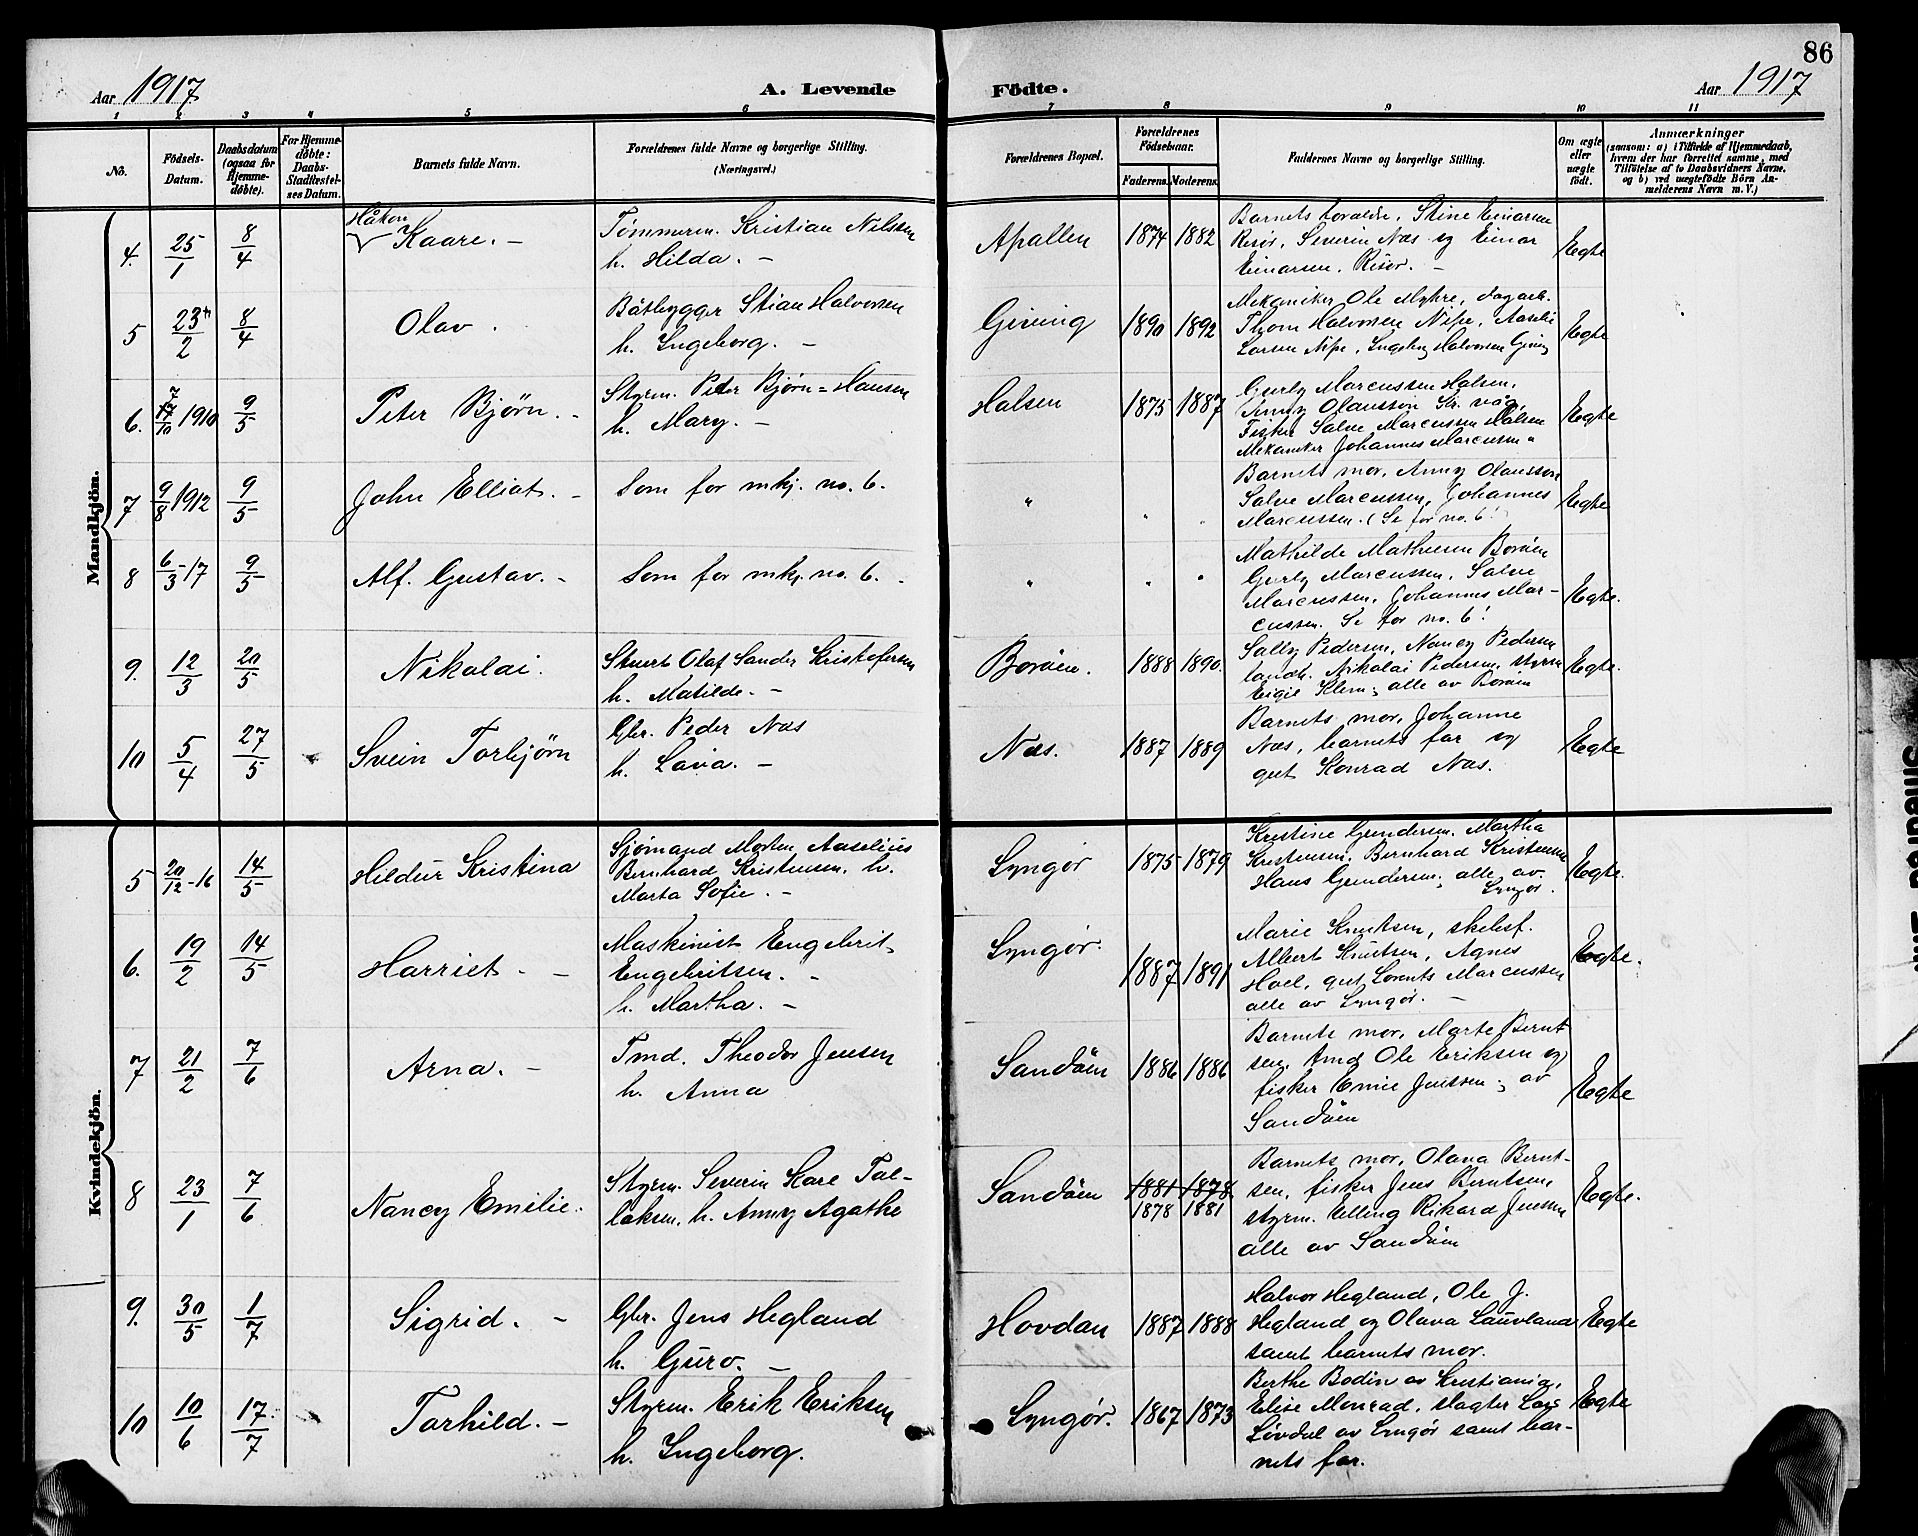 86
Aar 1917
A. Levende Födte.
Aar 1917
1 2 3 4 5 6 7 8 9 10 11
No.
Födsels-
Datum.
Daabsdatum
(ogsaa for
Hjemme-
døbte).
For Hjemme-
døbte:
Daabs-
Stadfæstel-
ses Datum.
Barnets fulde Navn.
Forældrenes fulde Navne og borgerlige Stilling.
(Næringsvei.)
Forældrenes Bopæl.
Forældrenes
Födselsaar.
Faderens. Moderens.
Faddernes Navne og borgerlige Stilling.
Om ægte
eller
uægte
født.
Anmærkninger
(saasom: a) i Tilfælde af Hjemmedaab,
hvem der har forrettet samme, med
Tilföielse af to Daabsvidners Navne,
og b) ved uægtefödte Börn An-
melderens Navn m. V.)
Mandkjön.
4. 25/1 8/4
Håkon
Kaare. –
Tømmerm. Kristian Nilssen
h. Hilda. –
Apallen 1874 1882
Barnets forældre, Stine Einarsen
Risør, Severin Næs og Einar
Einarsen, Risør. –
Ægte
5 23/2 8/4
Olav.
Båtbygger Stian Halvorsen
h. Ingeborg. –
Giving 1890 1892
Mekaniker Ole Myhre, dagarb.
Thom Halvorsen Nipe, Aaselie
Larsen Nipe, Ingeborg Halvorsen Giving
Ægte
6. 7/10 1910 9/5
Peter Bjørn. –
Styrm. Peter Bjørn=Hansen
h. Mary. –
Halsen 1875 1887
Gurly Marcussen Halsen,
Anny Olausson Kr. våg,
Fisker Salve Marcussen Halsen
Mekaniker Johannes Marcussen "
Ægte
7 9/8 1912 9/5
John Elliot. –
Som for mkj. no. 6.
" " "
Barnets mor, Anny Olausson
Salve Marcussen, Johannes
Marcussen. (Se for no. 6!)
Ægte
8 6/3-17 9/5
Alf. Gustav. –
Som for mkj. no. 6. –
" " "
Mathilde Mathiesen Borøen
Gurly Marcussen, Salve
Marcussen, Johannes Mar-
cussen. Se for no. 6!
Ægte.
9. 12/3 20/5
Nikolai.
Stuert Olaf Sander Kristofersen
h. Matilde. –
Borøen. 1888 1890.
Sally Pedersen, Nancy Pedersen
landh. Nikolai Pedersen, styrm
Eigil Klem; alle av Borøen
Ægte.
10 5/4 27/5
Svein Torbjørn
Gbr. Peder Næs
h. Lava. –
Næs. 1887 1889
Barnets mor, Johanne
Næs, barnets far og
gut Konrad Næs.
Ægte
Kvindekjön.
5 20/12-16 14/5
Hildur Kristina
Sjømand Morten Aaselius
Bernhard Kristensen, h.
Marta Sofie. –
Lyngør 1875 1879
Kristine Gundersen, Martha
Kristensen, Bernhard Kristensen
Hans Gundersen; alle av
Lyngør.
Ægte.
6. 19/2 14/5
Harriet. –
Maskinist Engebrit
Engebritsen. –
h. Martha. –
Lyngør. 1887 1891
Marie Knutsen, skibsf.
Albert Knutsen, Agnes
Hoel, gut Lorents Marcussen
alle av Lyngør. –
Ægte.
7 21/2 7/6
Arna. –
Tmd. Theodor Jensen
h. Anna
Sandøen 1886 1886
Barnets mor, Marte Bernt
sen, tmd Ole Eriksen og
fisker Emil Jenssen; av
Sandøen
Ægte
8 23/1 7/6
Nancy Emilie.
Styrm. Severin Kare Tal-
laksen, h. Anny Agathe
Sandøen 1881 1878
1878 1881
Barnets mor, Olava Bernt-
sen, fisker Jens Berntsen,
styrm. Elling Rikard Jensen
alle av Sandøen
Ægte.
9. 30/5 1/7
Sigrid. –
Gbr. Jens Hegland
h. Guro. –
Hovdan 1887 1888
Halvor Hegland, Ole J.
Hegland og Olava Lauvland
samt barnets mor.
Ægte
10 10/6 17/7
Torhild. –
Styrm. Erik Eriksen
h. Ingeborg.
Lyngør. 1867 1873
Berthe Bodin av Kristiania,
Elise Monrad, slagter Lars
Løvdal av Lyngør samt bar-
nets far.
Ægte